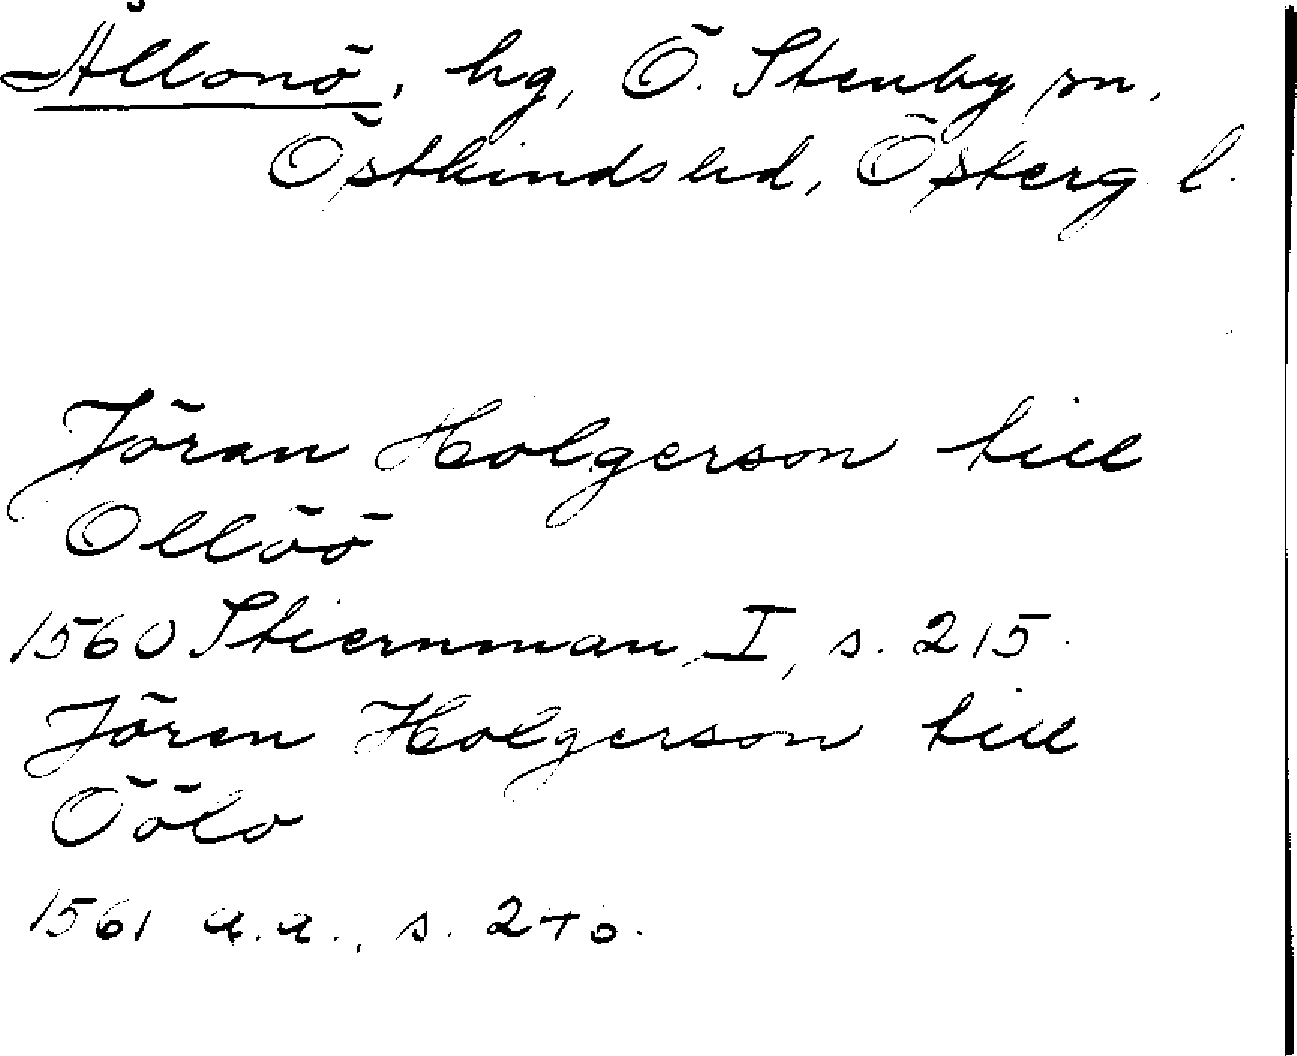 Ållonö, hg, Ö. Stenby sn,
Östkinds hd, Österg l.
Jöran Holgerson till
Ollöö
1560 Stiernman I, s. 215.
Jören Holgerson till
Öölo
1561 a.a., s.